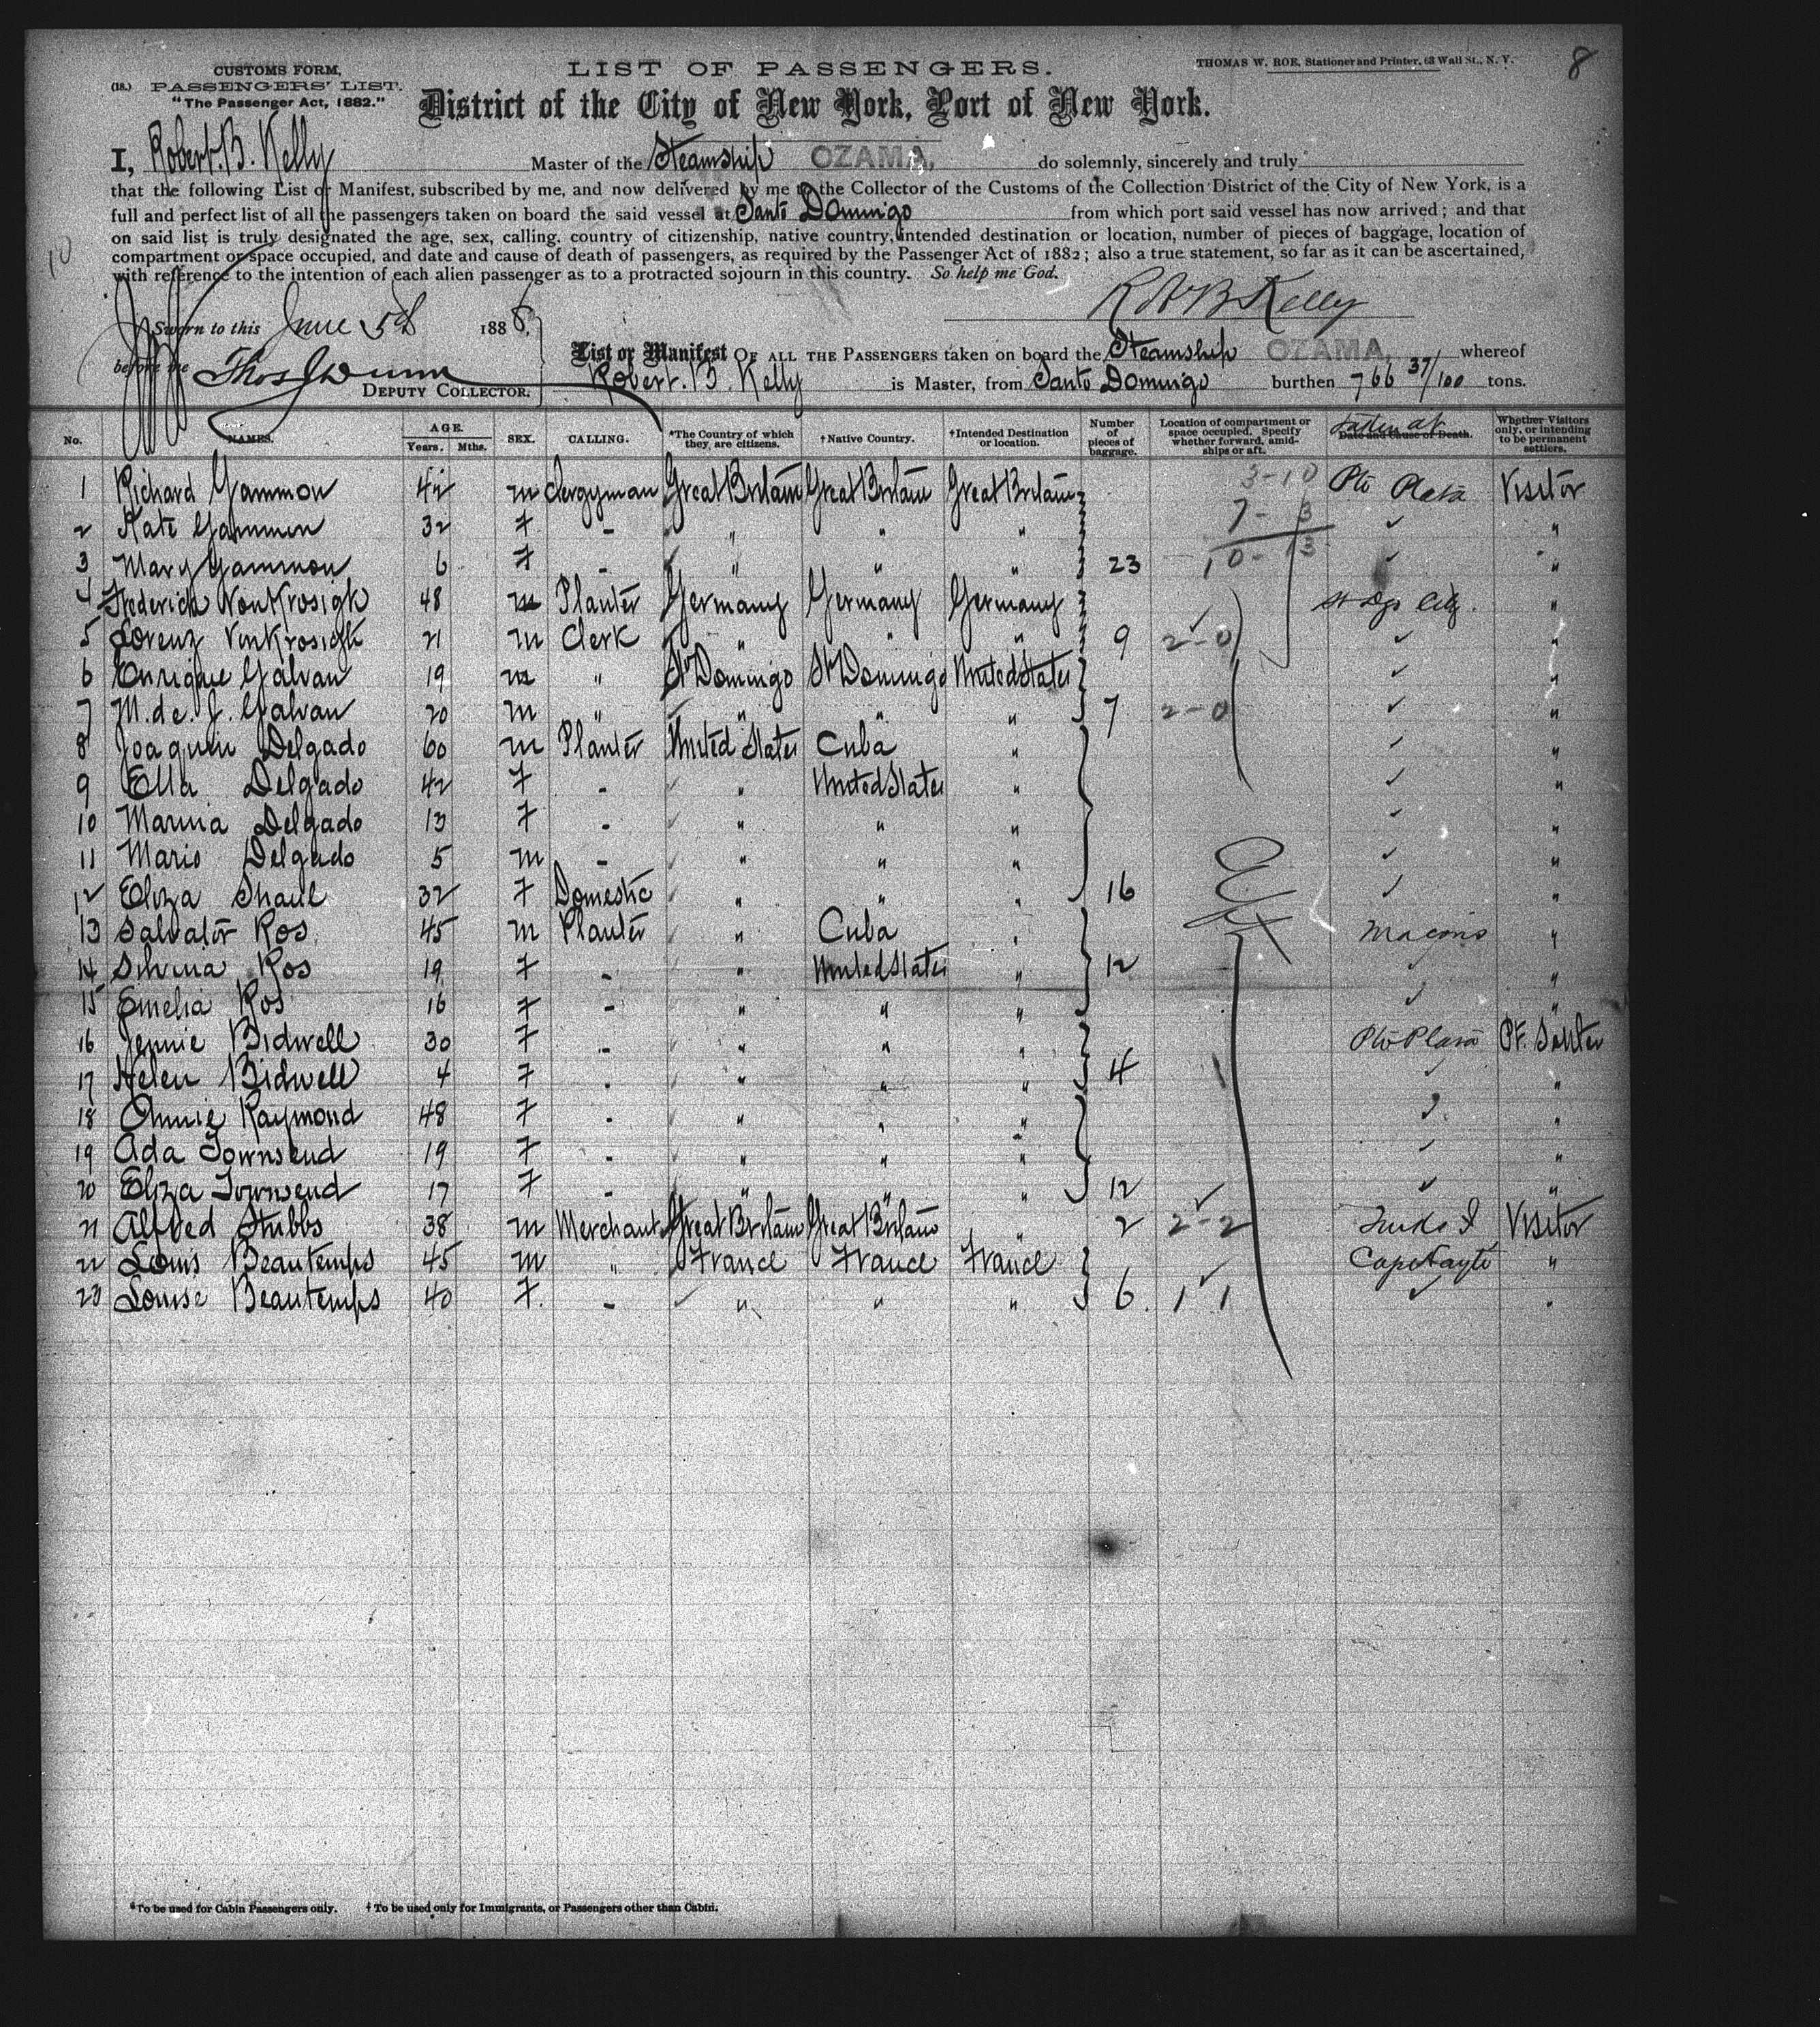 8
CUSTOMS FORM,
(18.) PASSENGERS' LIST.
"The Passenger Act, 1882."
LIST OF PASSENGERS.
THOMAS W. ROE, Stationer and Printer, 63 Wall St., N. Y.
District of the City of New York, Port of New York.
I, Robert. B. Kelly Master of the Steamship OZAMA, do solemnly, sincerely and truly
that the following List or Manifest, subscribed by me, and now delivered by me to the Collector of the Customs of the Collection District of the City of New York, is a
full and perfect list of all the passengers taken on board the said vessel at Santo Domingo from which port said vessel has now arrived; and that
on said list is truly designated the age, sex, calling, country of citizenship, native country, intended destination or location, number of pieces of baggage, location of
compartment or space occupied, and date and cause of death of passengers, as required by the Passenger Act of 1882; also a true statement, so far as it can be ascertained,
with reference to the intention of each alien passenger as to a protracted sojourn in this country. So help me God.
10
R B Kelly
Sworn to this June 5th 188
before me Thos J Dunn
DEPUTY COLLECTOR.
List or Manifest OF ALL THE PASSENGERS taken on board the Steamship OZAMA, whereof
Robert. B. Kelly is Master, from Santo Domingo burthen 766 37/100 tons.
No. NAMES. AGE. Years. Mths. SEX. CALLING. *The Country of which they are citizens. †Native Country. †Intended Destination or location. Number of pieces of baggage. Location of compartment or space occupied. Specify whether forward, amidships or aft. Taken at Date and Cause of Death. Whether Visitors only, or intending to be permanent settlers.
1 Richard Gammon 42 m Clergyman Great Britain Great Britain Great Britain 3-10 Pto Plata Visitor
2 Kate Gammon 32 F - " " " 7-3 ✓ "
3 Mary Gammon 6 F - " " " 23 10-13 ✓ "
4 Frederich VonKrosigk 48 m Planter Germany Germany Germany St Dgo City. "
5 Lorenz VonKrosigk 21 m Clerk " " " 9 2-0 ✓ "
6 Enrique Galvan 19 m " St Domingo St Domingo United States ✓ "
7 M. de. J. Galvan 20 m " " " " 7 2-0 ✓ "
8 Joaquin Delgado 60 m Planter United States Cuba " ✓ "
9 Ella Delgado 42 F - " United States " ✓ "
10 Marina Delgado 13 F - " " " ✓ "
11 Mario Delgado 5 m - " " " ✓ "
12 Eliza Shaul 32 F Domestic " " " 16 ✓ "
13 Salvator Ros 45 m Planter " Cuba " Macoris "
14 Silvina Ros 19 F - " United States " 12 ✓ "
15 Emelia Ros 16 F - " " " ✓ "
16 Jennie Bidwell 30 F - " " " Pto Plata Pt. Settler
17 Helen Bidwell 4 F - " " " 4 ✓ "
18 Annie Raymond 48 F - " " " "
19 Ada Townsend 19 F - " " " ✓ "
20 Eliza Townsend 17 F - " " " 12 ✓ "
21 Alfred Stubbs 38 m Merchant Great Britain Great Britain " 2 2-2 Turks I Visitor
22 Louis Beautemps 45 m " France France France Cape Hayti "
23 Louise Beautemps 40 F. - " " " 6. 1 1 ✓ "
*To be used for Cabin Passengers only. †To be used only for Immigrants, or Passengers other than Cabin.